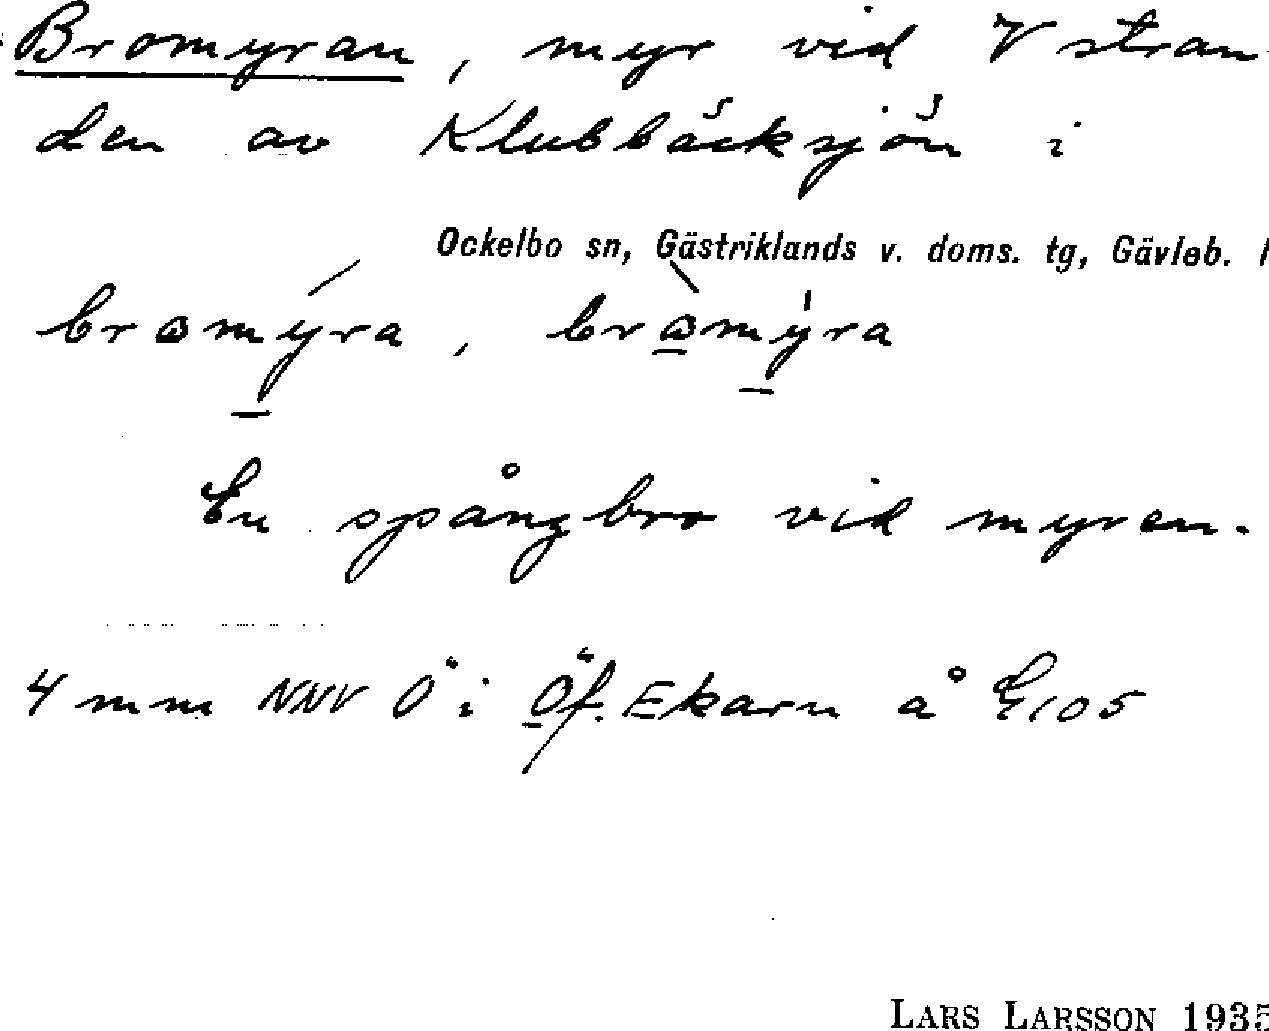 Bromyran, myr vid V stran
den av Klubbäcksjön i
Ockelbo sn, Gästriklands v. doms. tg, Gävleb. l
bromýra, bròmýra
En spångbro vid myren.
4 mm NNV Ö i Öf. Ekarn å E105
LARS LARSSON 1935